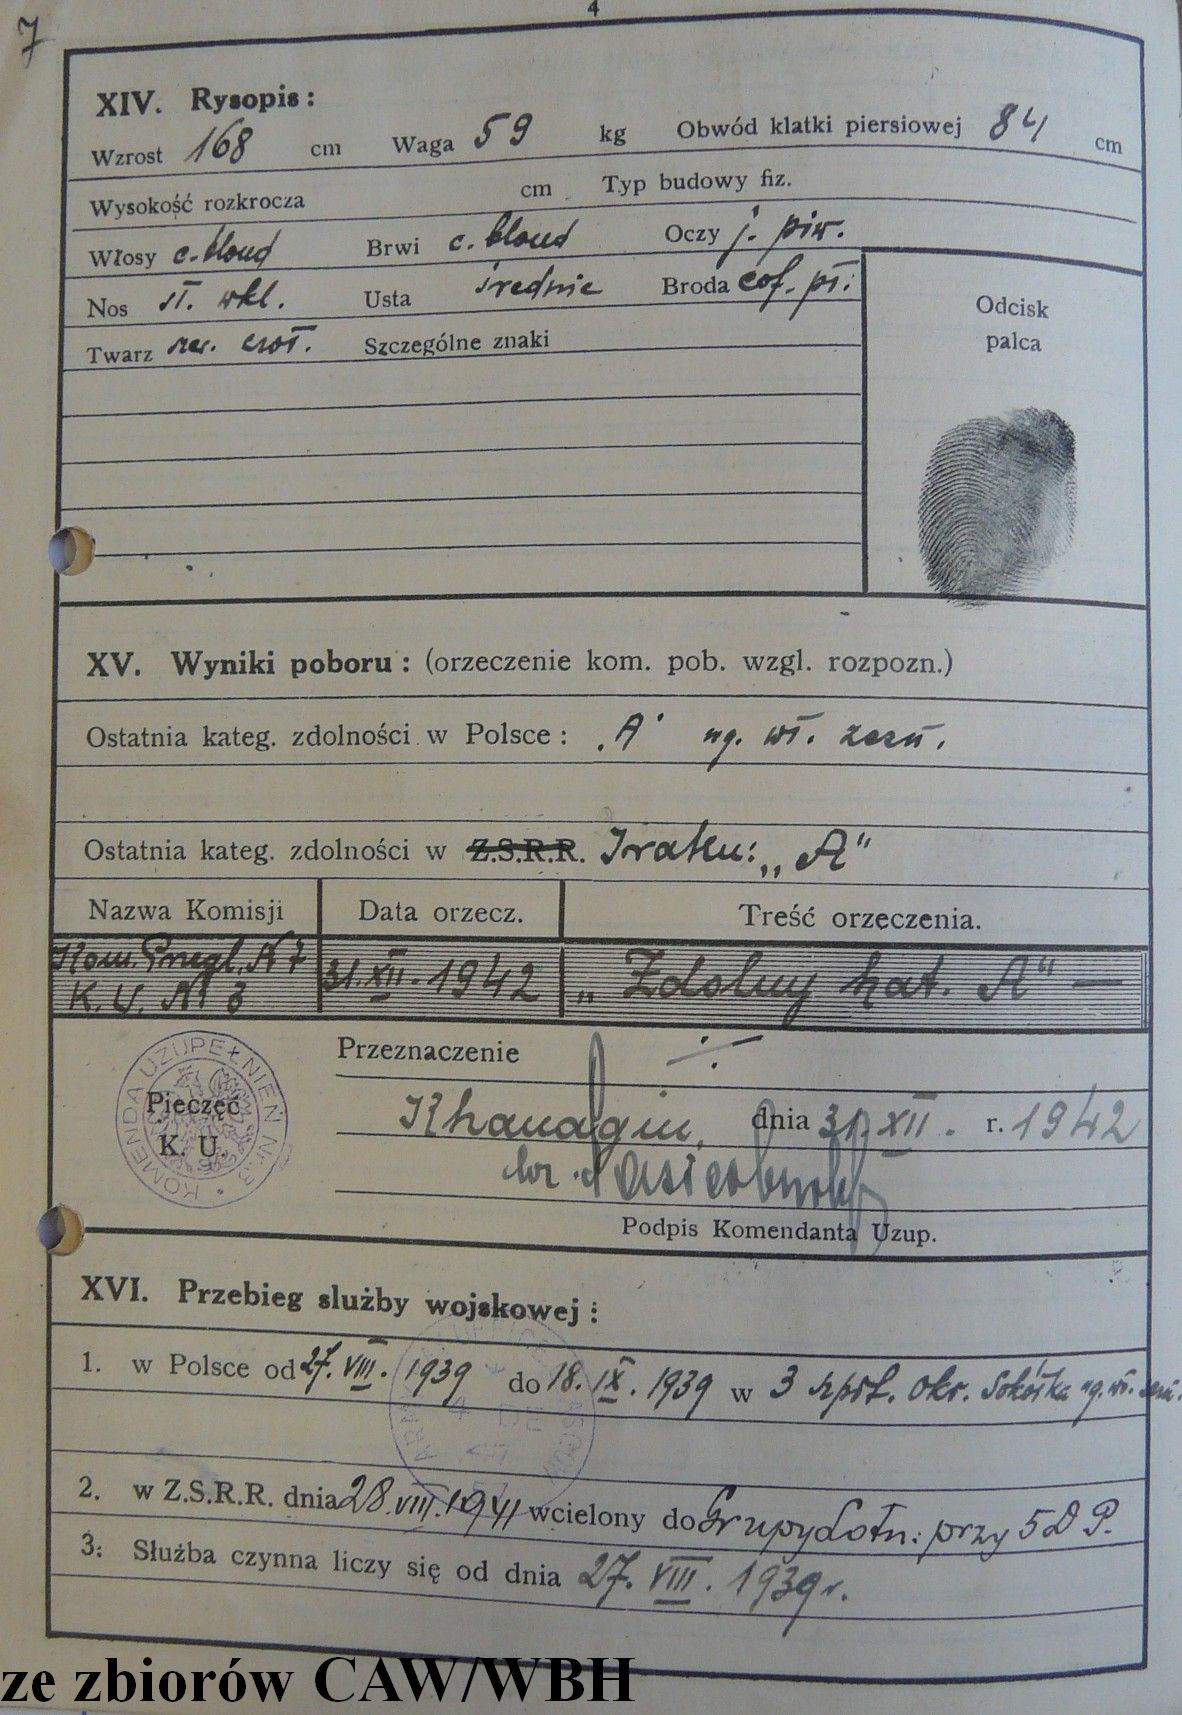 7
4
XIV. Rysopis:
Wzrost 168 cm Waga 59 kg Obwód klatki piersiowej 84 cm
Wysokość rozkrocza cm Typ budowy fiz.
Włosy c. blond Brwi c. blond Oczy j. piw.
Nos st. wkl. Usta średnie Broda cof. pł.
Twarz Szczególne znaki
Odcisk
palca
XV. Wyniki poboru: (orzeczenie kom. pob. wzgl. rozpozn.)
Ostatnia kateg. zdolności w Polsce: „A” wg. wł. zezn.
Ostatnia kateg. zdolności w Z.S.R.R. Iraku: „A“
Nazwa Komisji Data orzecz. Treść orzeczenia.
Kom. Przegl. N 7
K. U. Nr 3 31.XII.1942 „Zdolny kat. A“ —
Przeznaczenie ⁒
KOMENDA UZUPEŁNIEŃ Nr. 3
Pieczęć
K. U.
Khanaqin, dnia 31.XII. r. 1942
Podpis Komendanta Uzup.
XVI. Przebieg służby wojskowej:
1. w Polsce od 27. VIII. 1939 do 18. IX. 1939 w 3 okr. Sokółka wg. wł. zezn.
2. w Z.S.R.R. dnia 28.VIII.1941 wcielony do Grupy Lotn. przy 5 D P.
3. Służba czynna liczy się od dnia 27. VIII. 1939 r.
ze zbiorów CAW/WBH